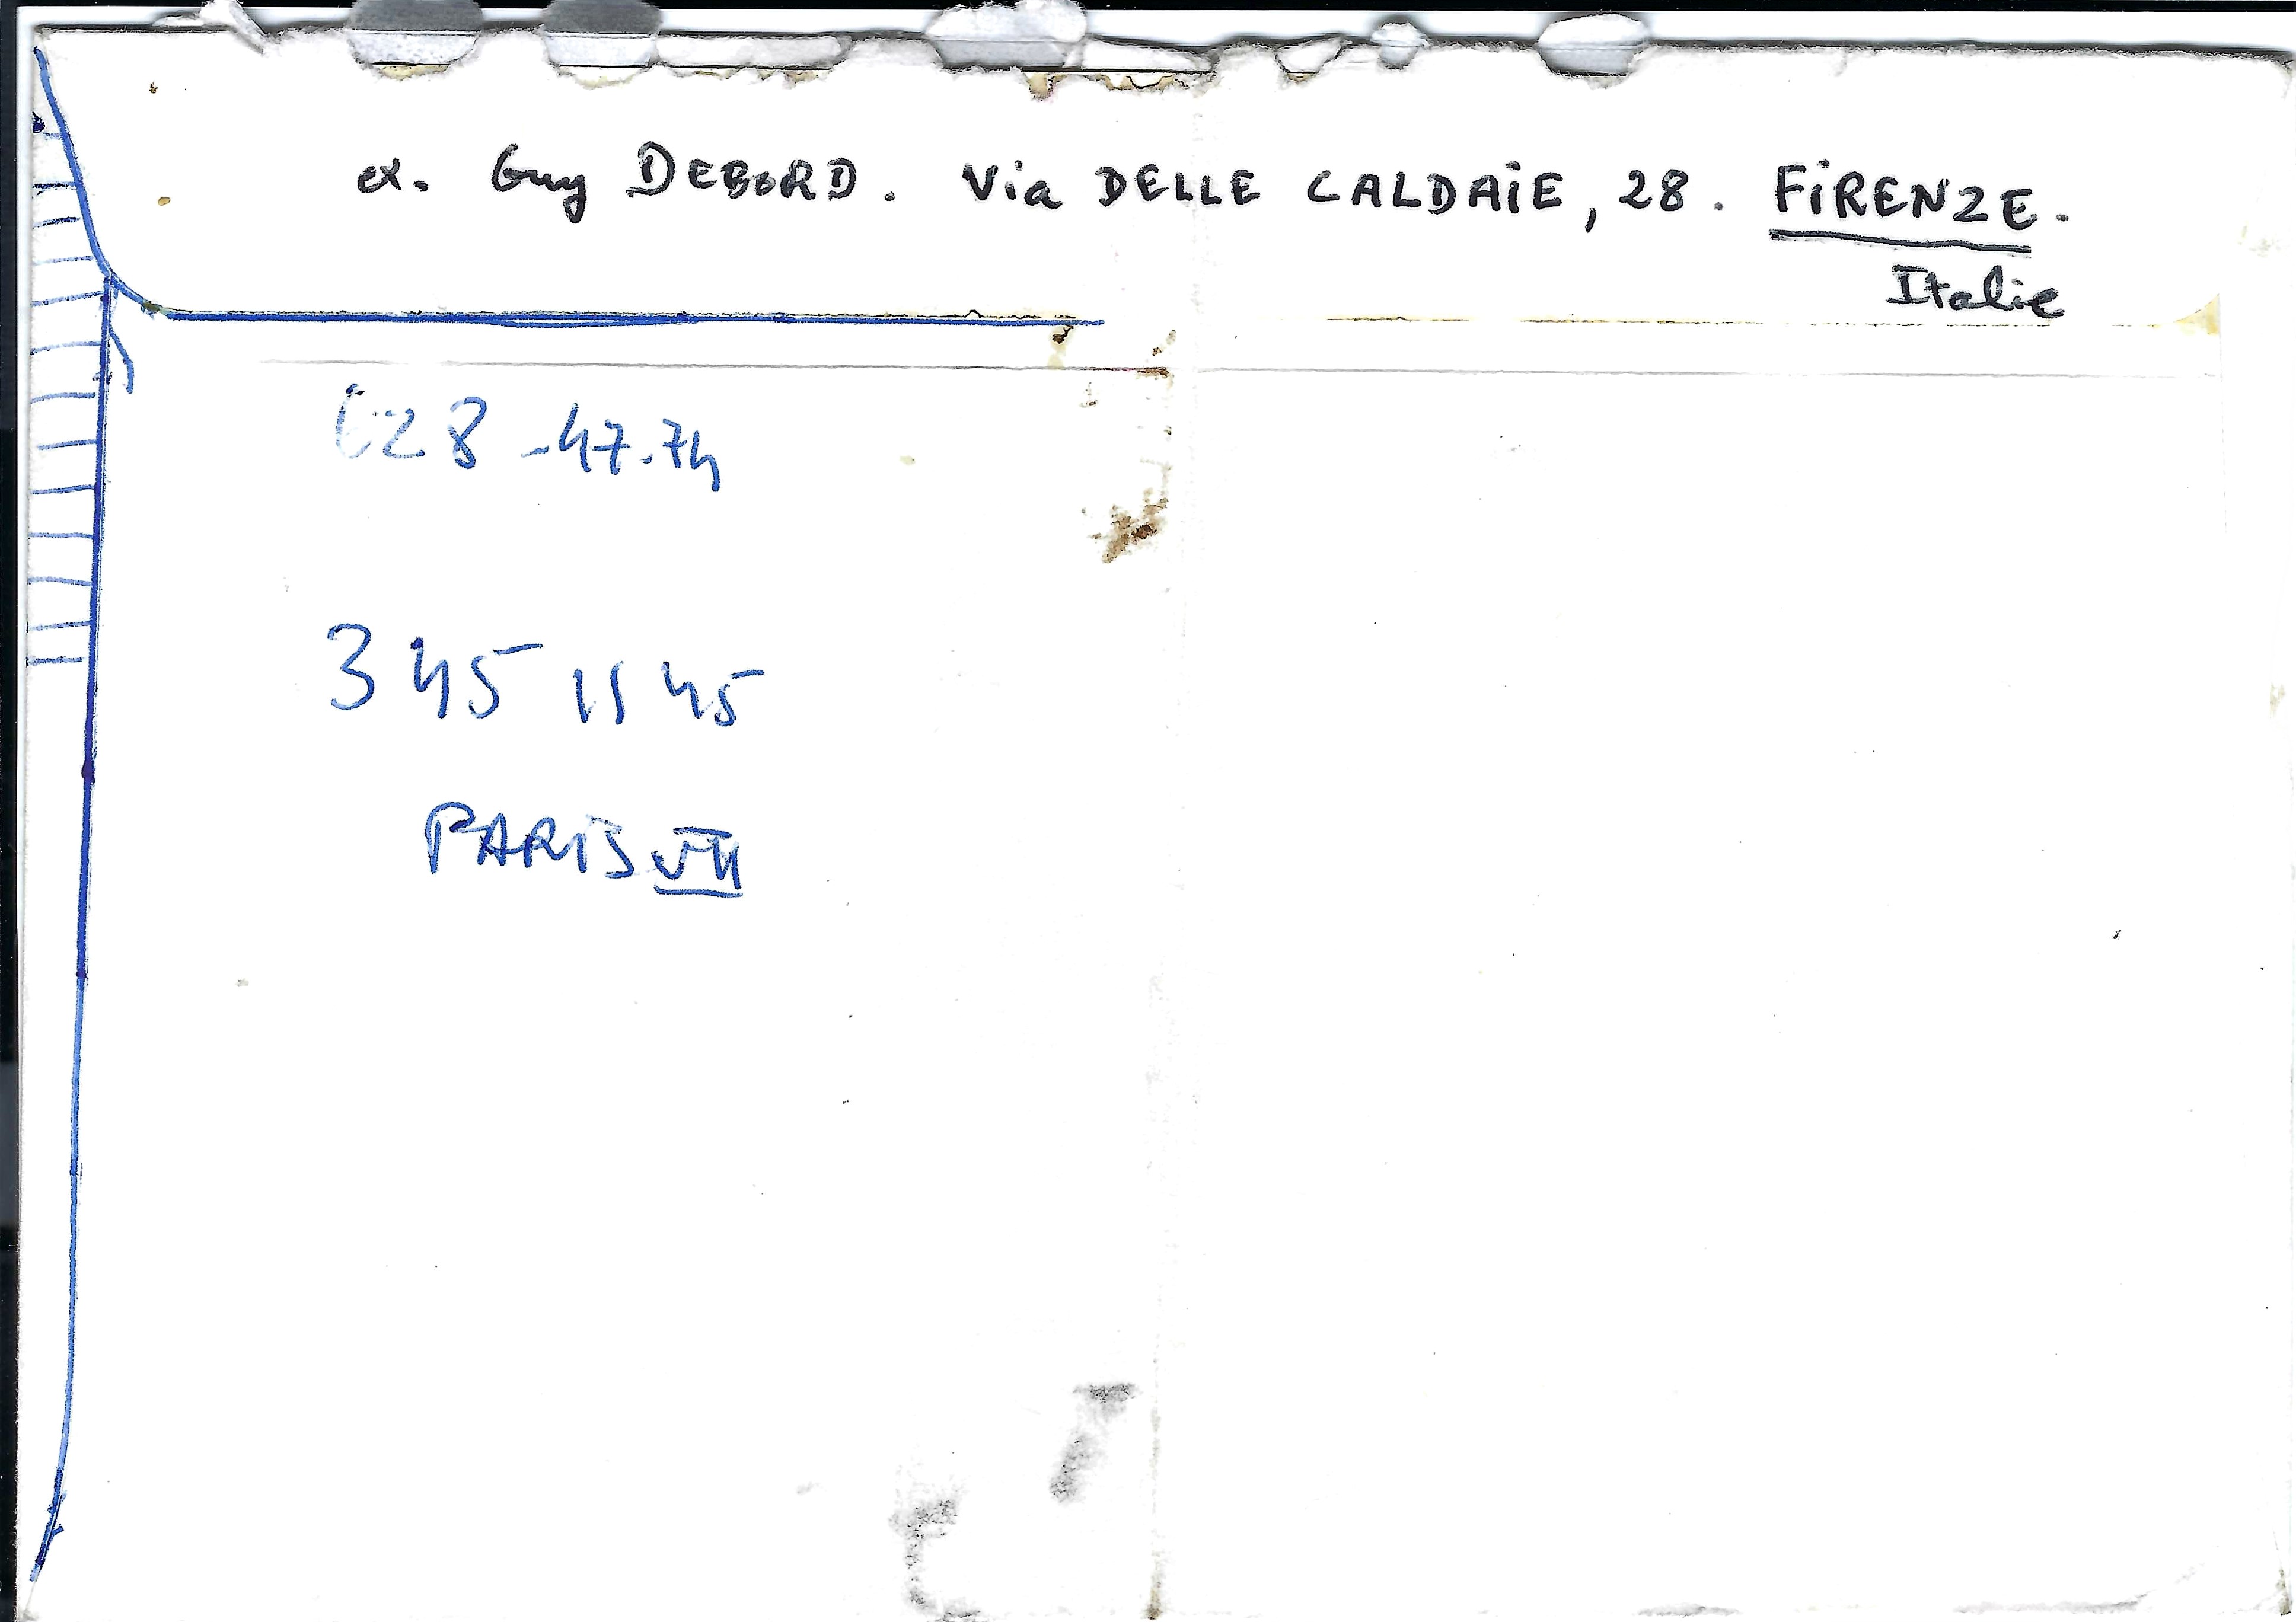 ex. Guy DEBORD. Via DELLE CALDAIE, 28. FIRENZE.
Italie
628-47.74
345 11 45
PARIS VII